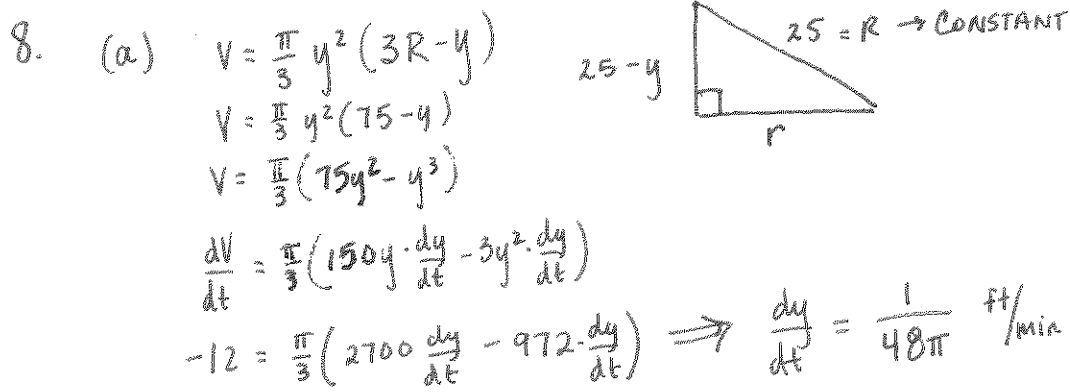 8. (a) V = π/3 y² (3R - y)
25 = R → CONSTANT
25 - y
r
V = π/3 y² (75 - y)
V = π/3 (75y² - y³)
dV/dt = π/3 (150y · dy/dt - 3y² · dy/dt)
-12 = π/3 (2700 dy/dt - 972 · dy/dt) ⟹ dy/dt = 1/48π ft/min